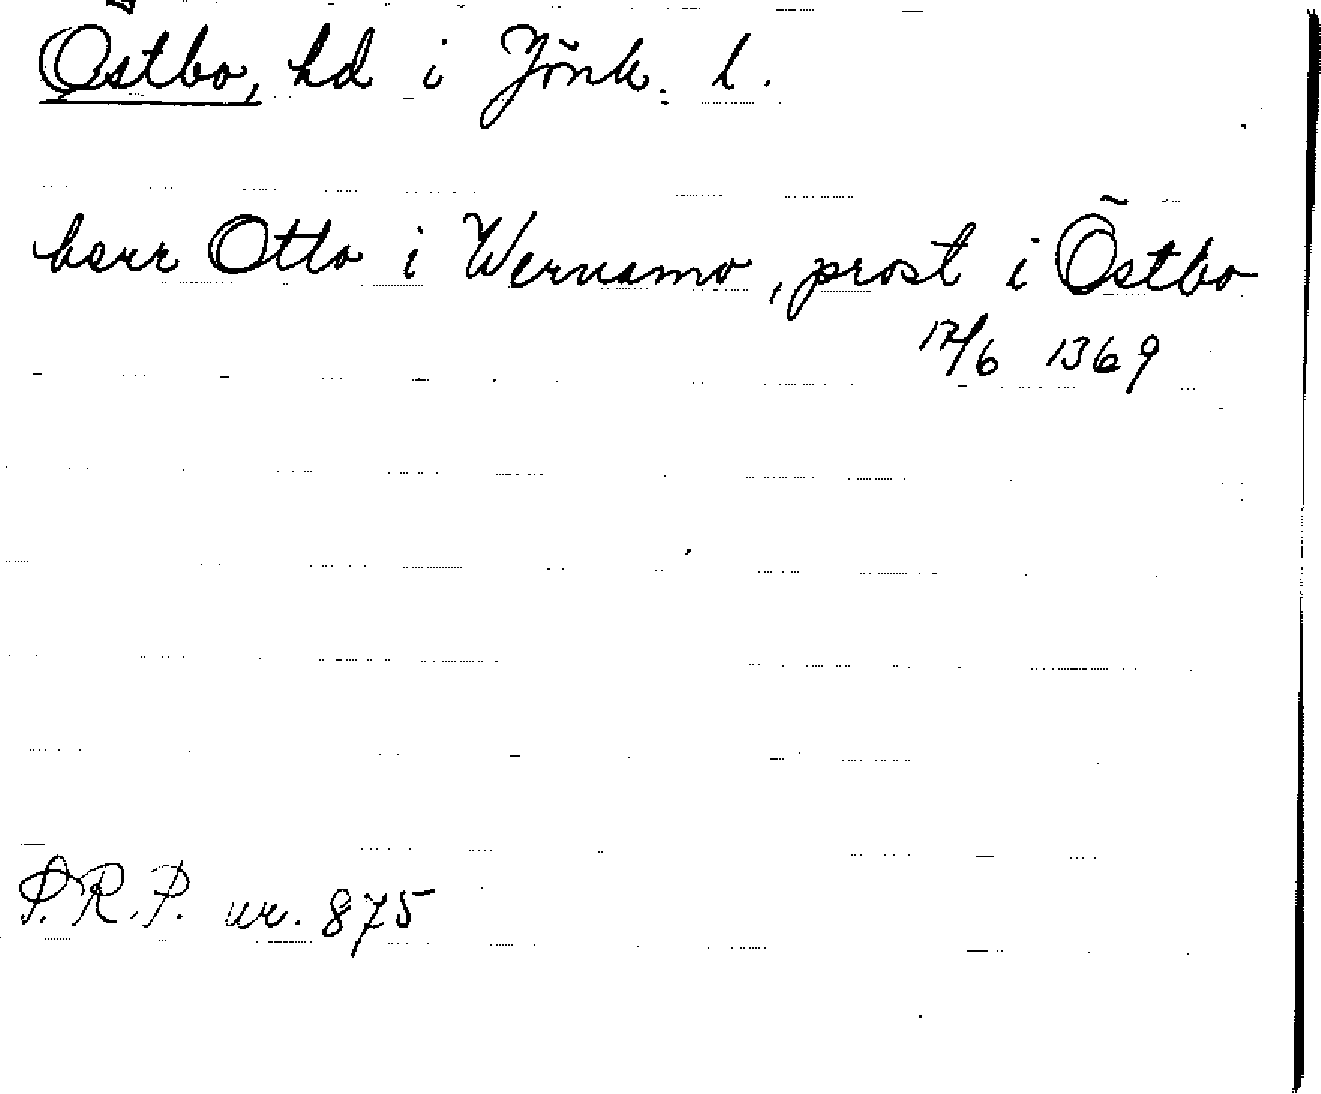 Östbo, hd i Jönk. l.
herr Otto i Wernamo, prost i Östbo
12/6 1369
P.R.P. nr. 875